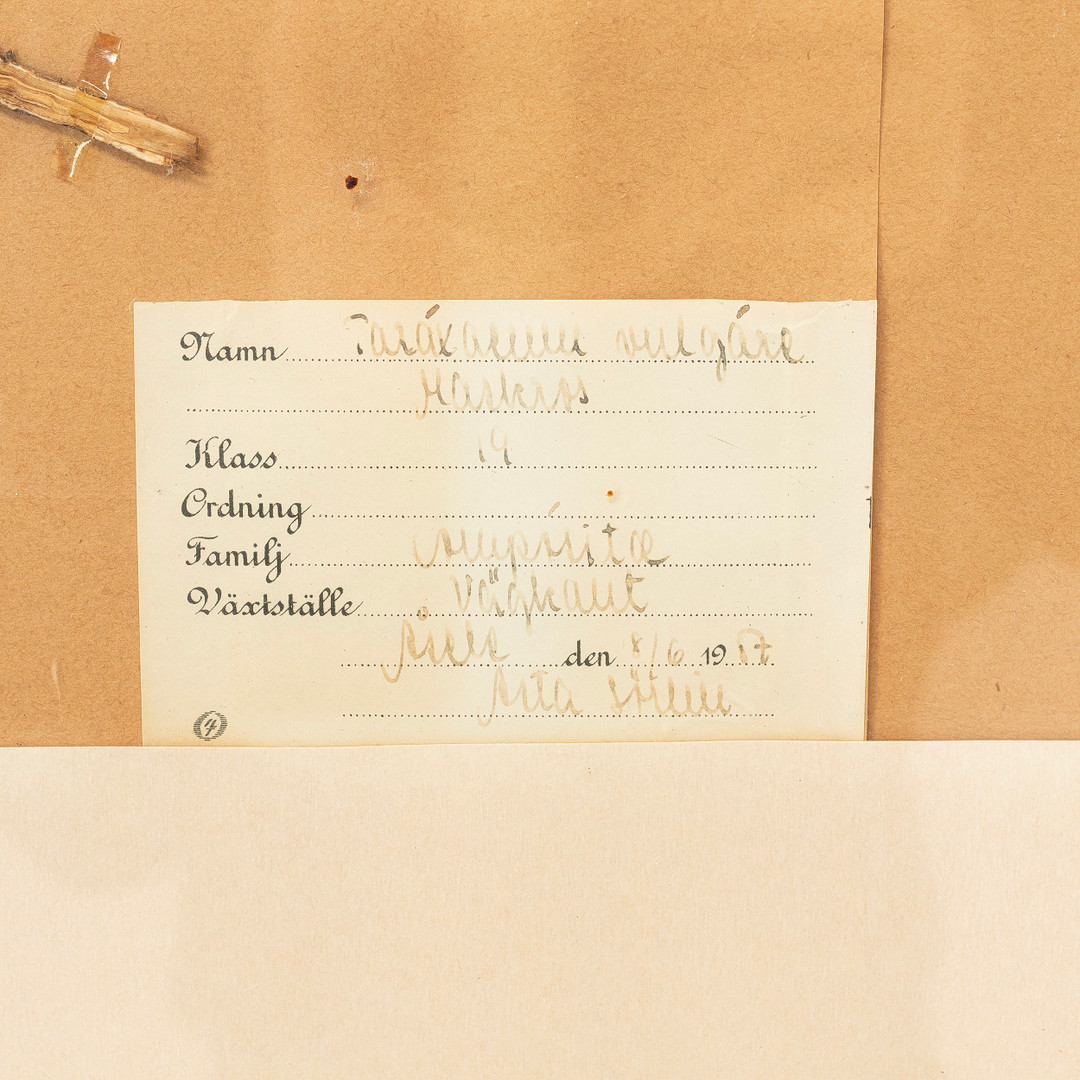 Namn Taráxacum vulgáre
Maskros
Klass 19
Ordning
Familj Compósitæ
Växtställe Vägkant
den 8/6 1957
4